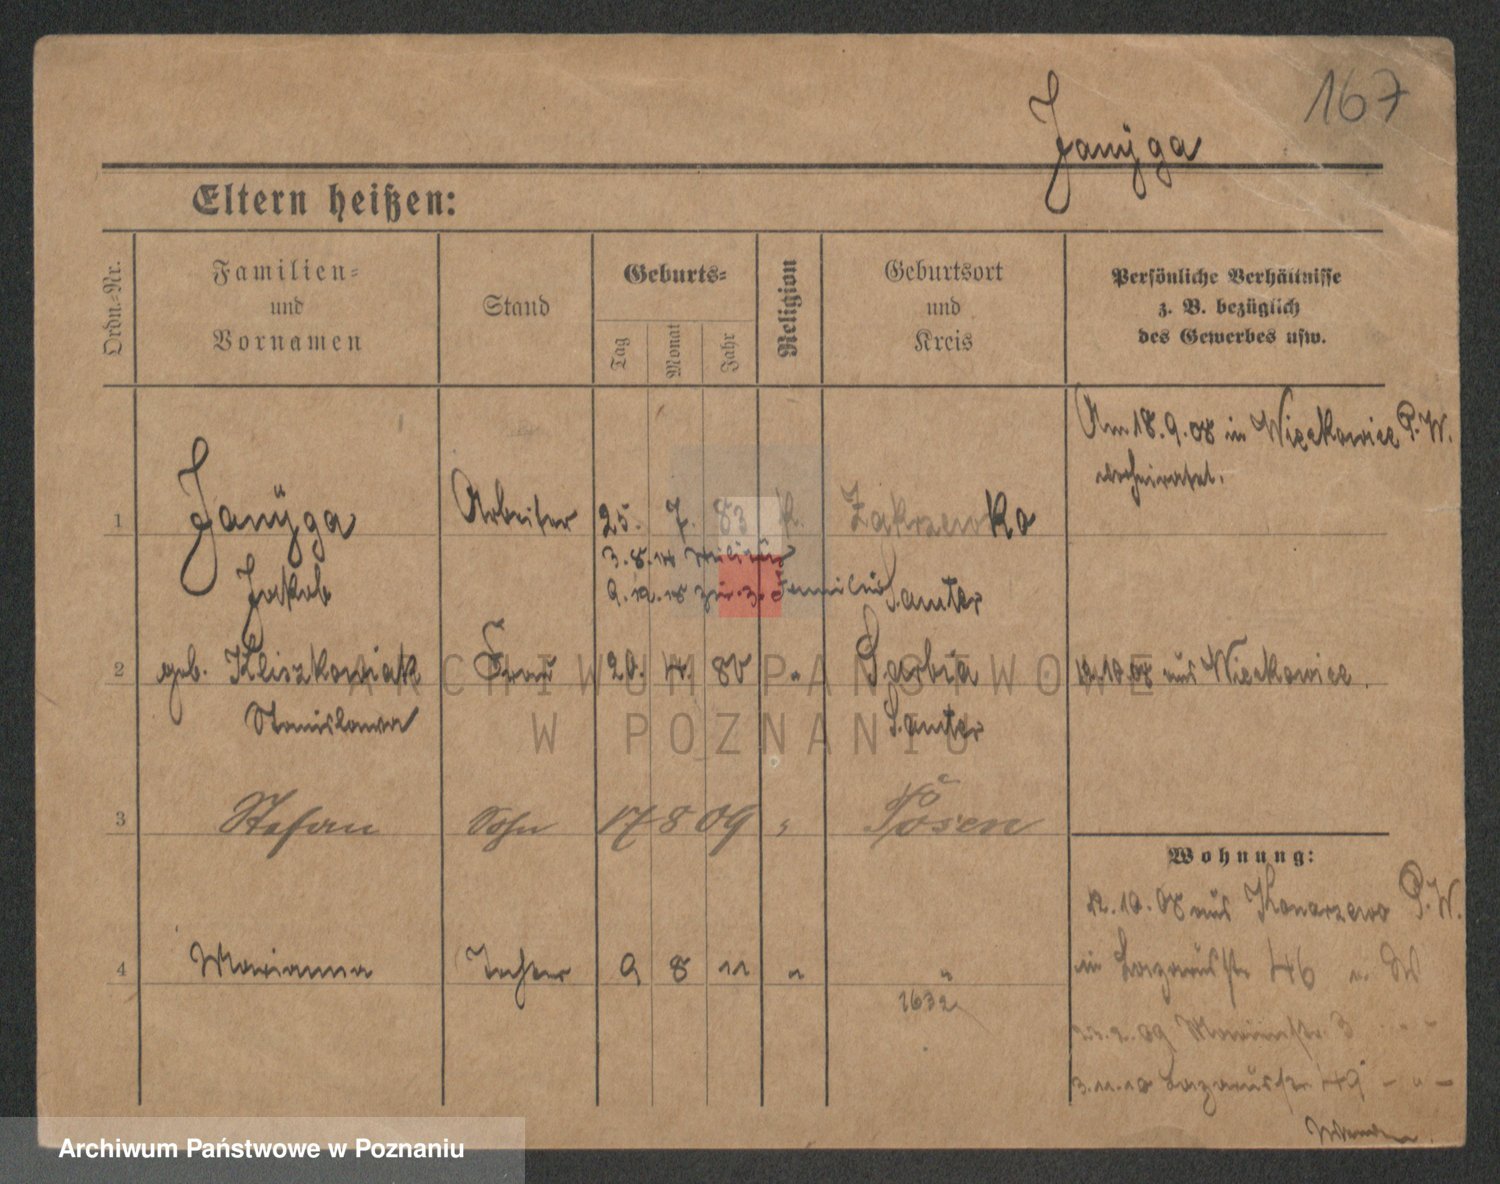 167
Janÿga
Eltern heißen:
Ordn.-Nr.
Familien-
und
Vornamen
Stand
Geburts-
Tag
Monat
Jahr
Religion
Geburtsort
und
Kreis
Persönliche Verhältnisse
z. B. bezüglich
des Gewerbes usw.
Am 18.9.08 in Wieckowice P. W.
verheiratet.
1 Janÿga Arbeiter 25. 7. 83 k. Zakrzewko
3.8.14 Militär
Jakob 9.12.18 zur. z. Familie Samter
2 geb. Kliszkowiak Frau 20. 4. 80 " Sarbia 12.10.08 aus Wieckowice
Stanislawa Samter
3 Stefan Sohn 17 8 09 " Posen
Wohnung:
12.10.08 aus Konarzewo P. W.
4 Marianna Tochter 9 8 11 " "
in Lazarusstr 46
1632
3.11.10 Lazarusstr 49 - " -
ARCHIWUM PAŃSTWOWE
W POZNANIU
Archiwum Państwowe w Poznaniu